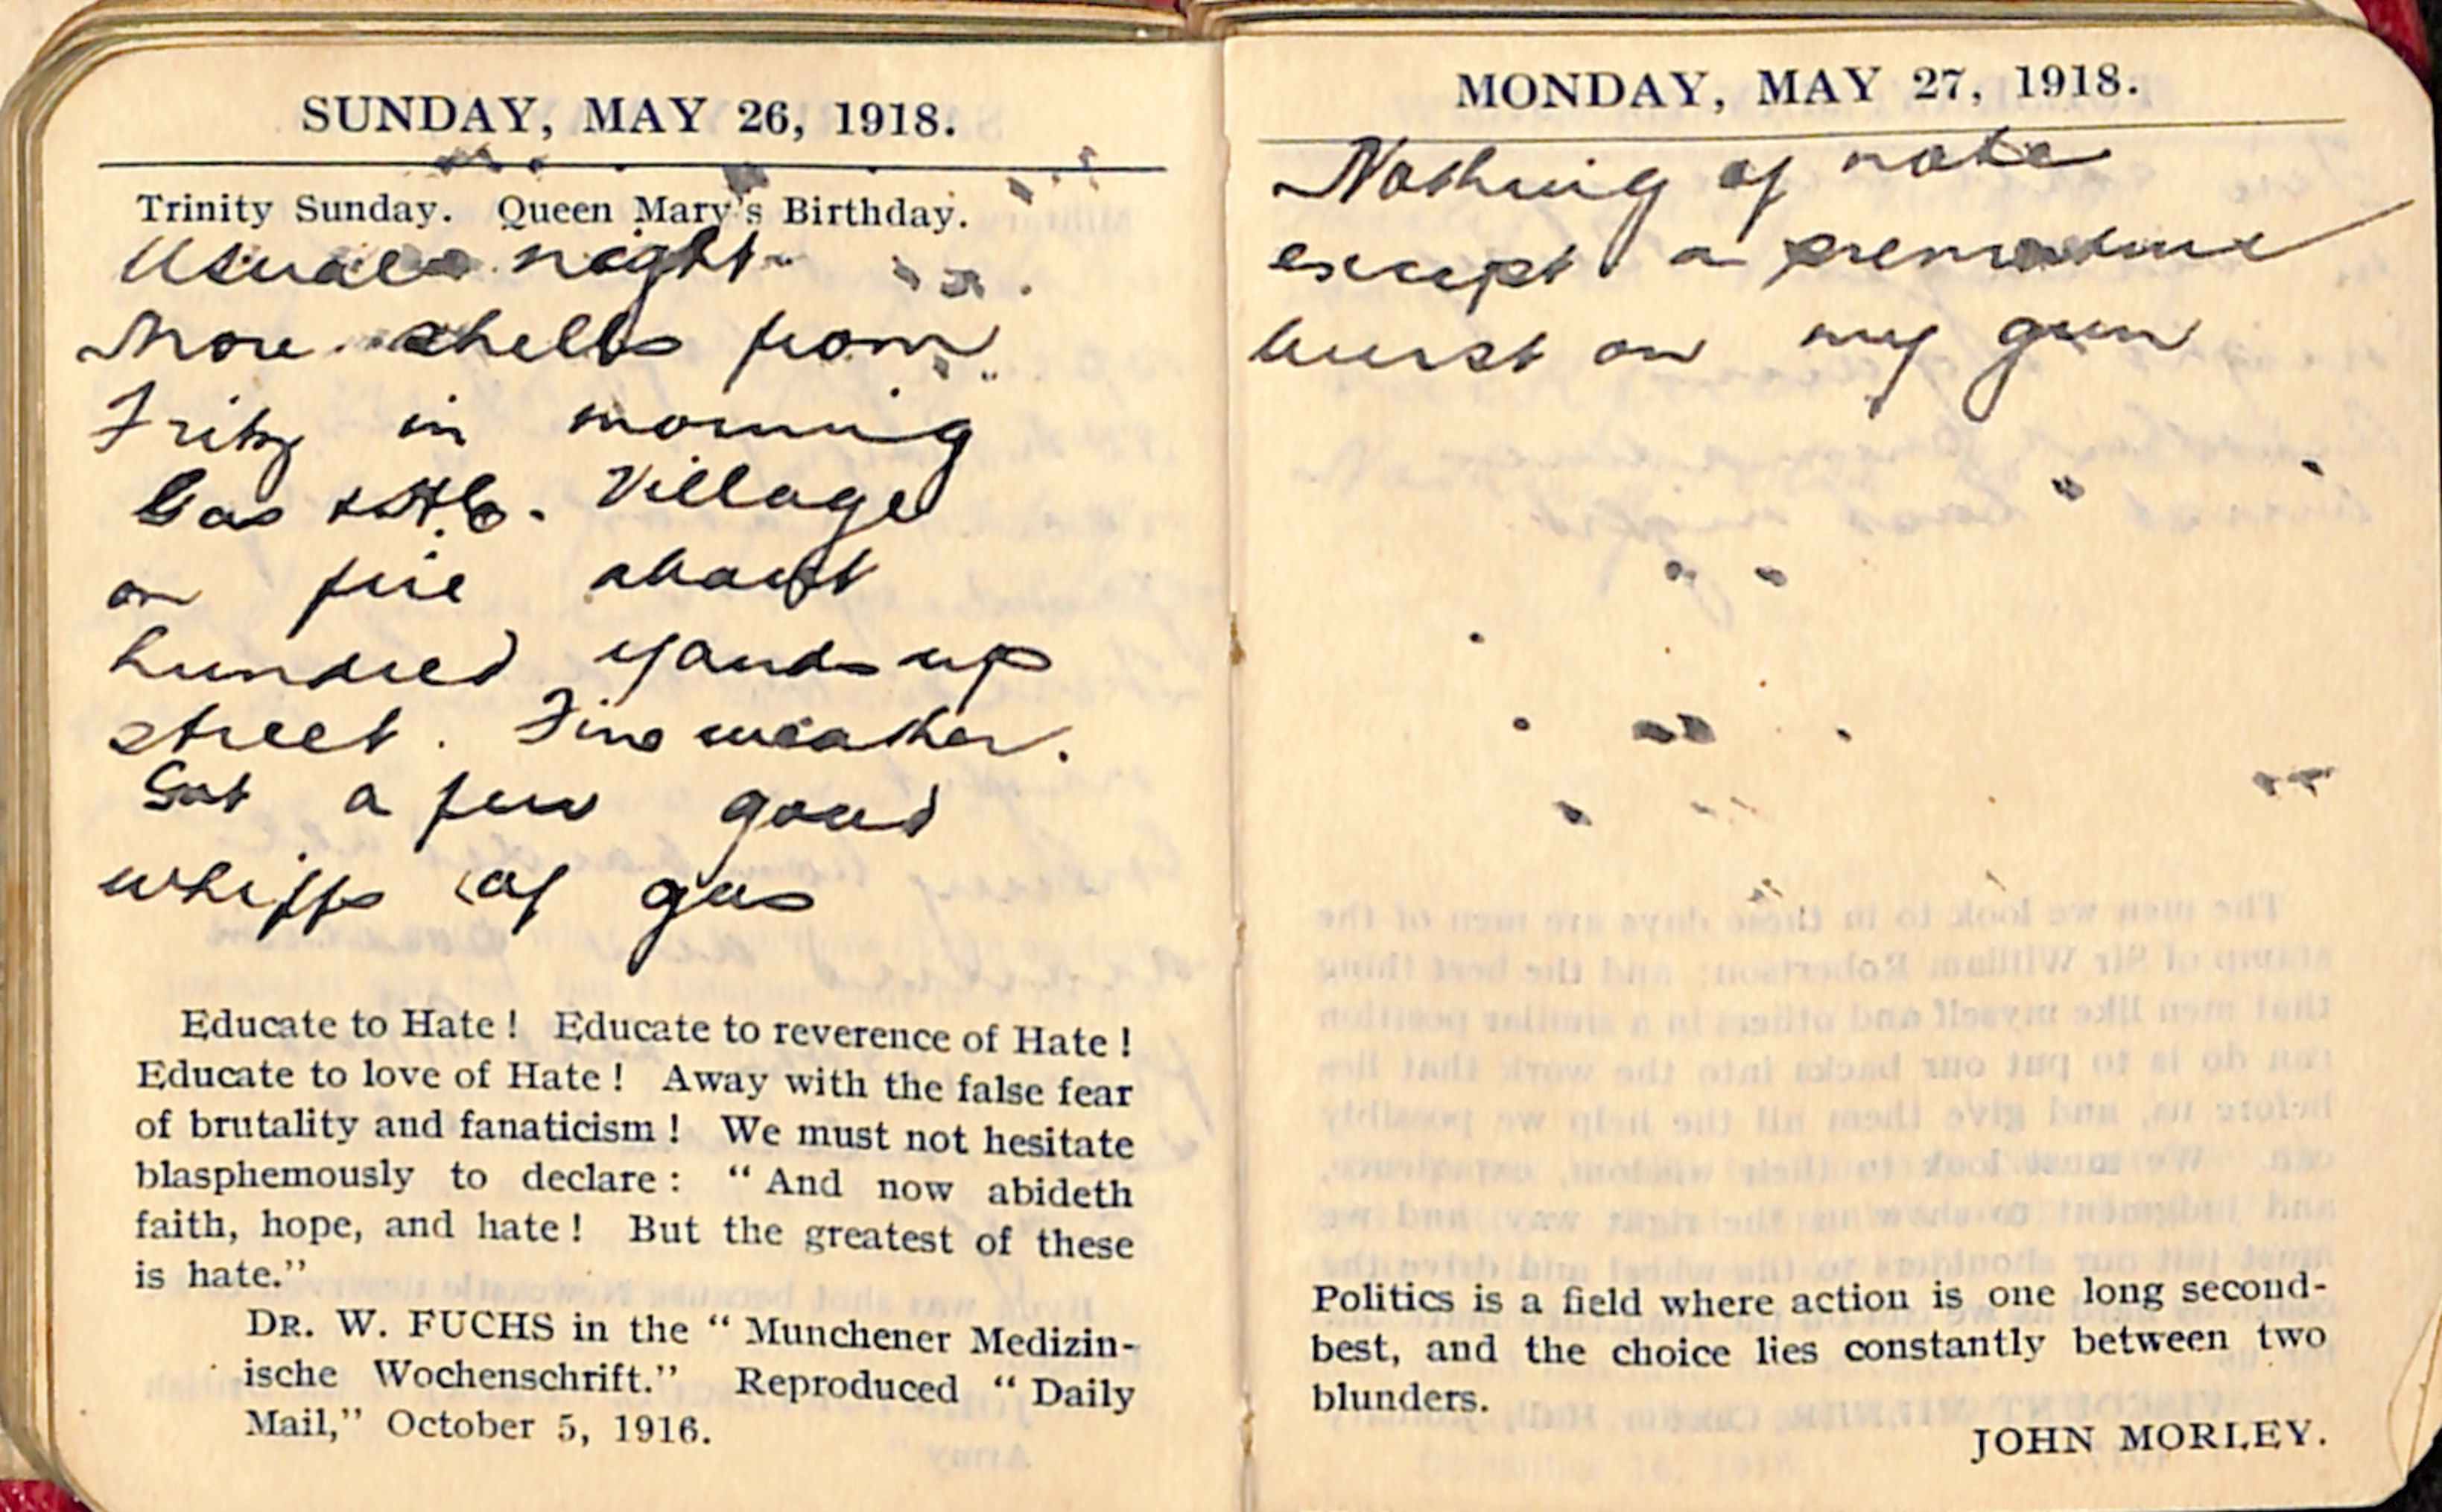 SUNDAY, MAY 26, 1918.
Trinity Sunday. Queen Mary's Birthday.
Usual night
More shells from
Fritz in morning
Gas & H.E. Village
on fire about
hundred yards up
street. Fine weather.
Got a few good
whiffs of gas
Educate to Hate! Educate to reverence of Hate!
Educate to love of Hate! Away with the false fear
of brutality and fanaticism! We must not hesitate
blasphemously to declare: "And now abideth
faith, hope, and hate! But the greatest of these
is hate."
DR. W. FUCHS in the "Munchener Medizin-
ische Wochenschrift." Reproduced "Daily
Mail," October 5, 1916.
MONDAY, MAY 27, 1918.
Nothing of note
except a premature
burst on my gun
Politics is a field where action is one long second-
best, and the choice lies constantly between two
blunders.
JOHN MORLEY.